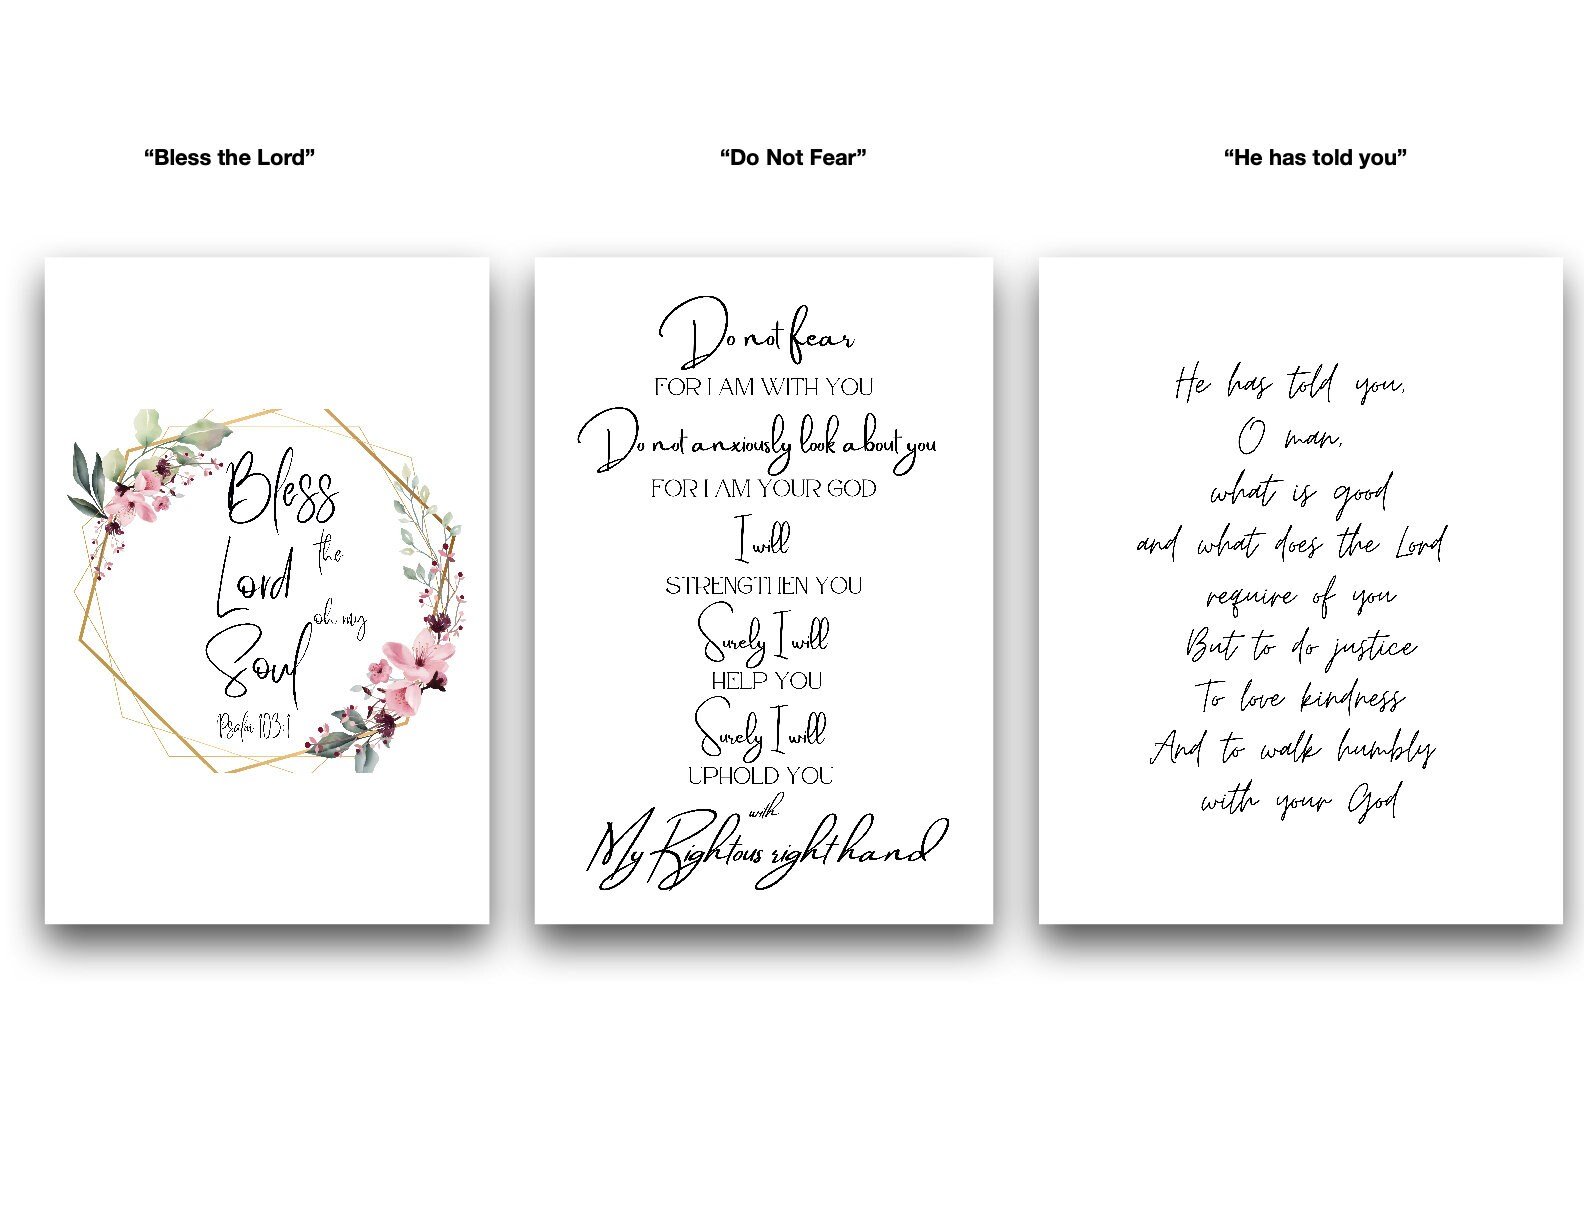 “Bless the Lord”
“Do Not Fear”
“He has told you”
Bless
the
Lord
oh my
Soul
Psalm 103:1
Do not fear
FOR I AM WITH YOU
Do not anxiously look about you
FOR I AM YOUR GOD
I will
STRENGTHEN YOU
Surely I will
HELP YOU
Surely I will
UPHOLD YOU
with
My Rightous right hand
He has told you,
O man,
what is good
and what does the Lord
require of you
But to do justice
To love kindness
And to walk humbly
with your God